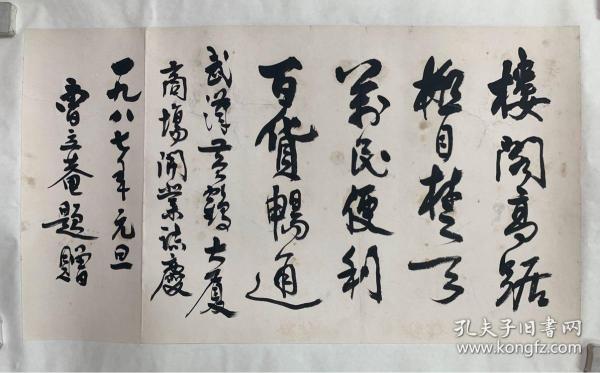 樓閣高踞
極目楚天
萬民便利
百貨暢通
武漢黃鶴大厦
商場開業誌慶
一九八七年元旦
曹立菴題贈
孔夫子旧书网
www.kongfz.com